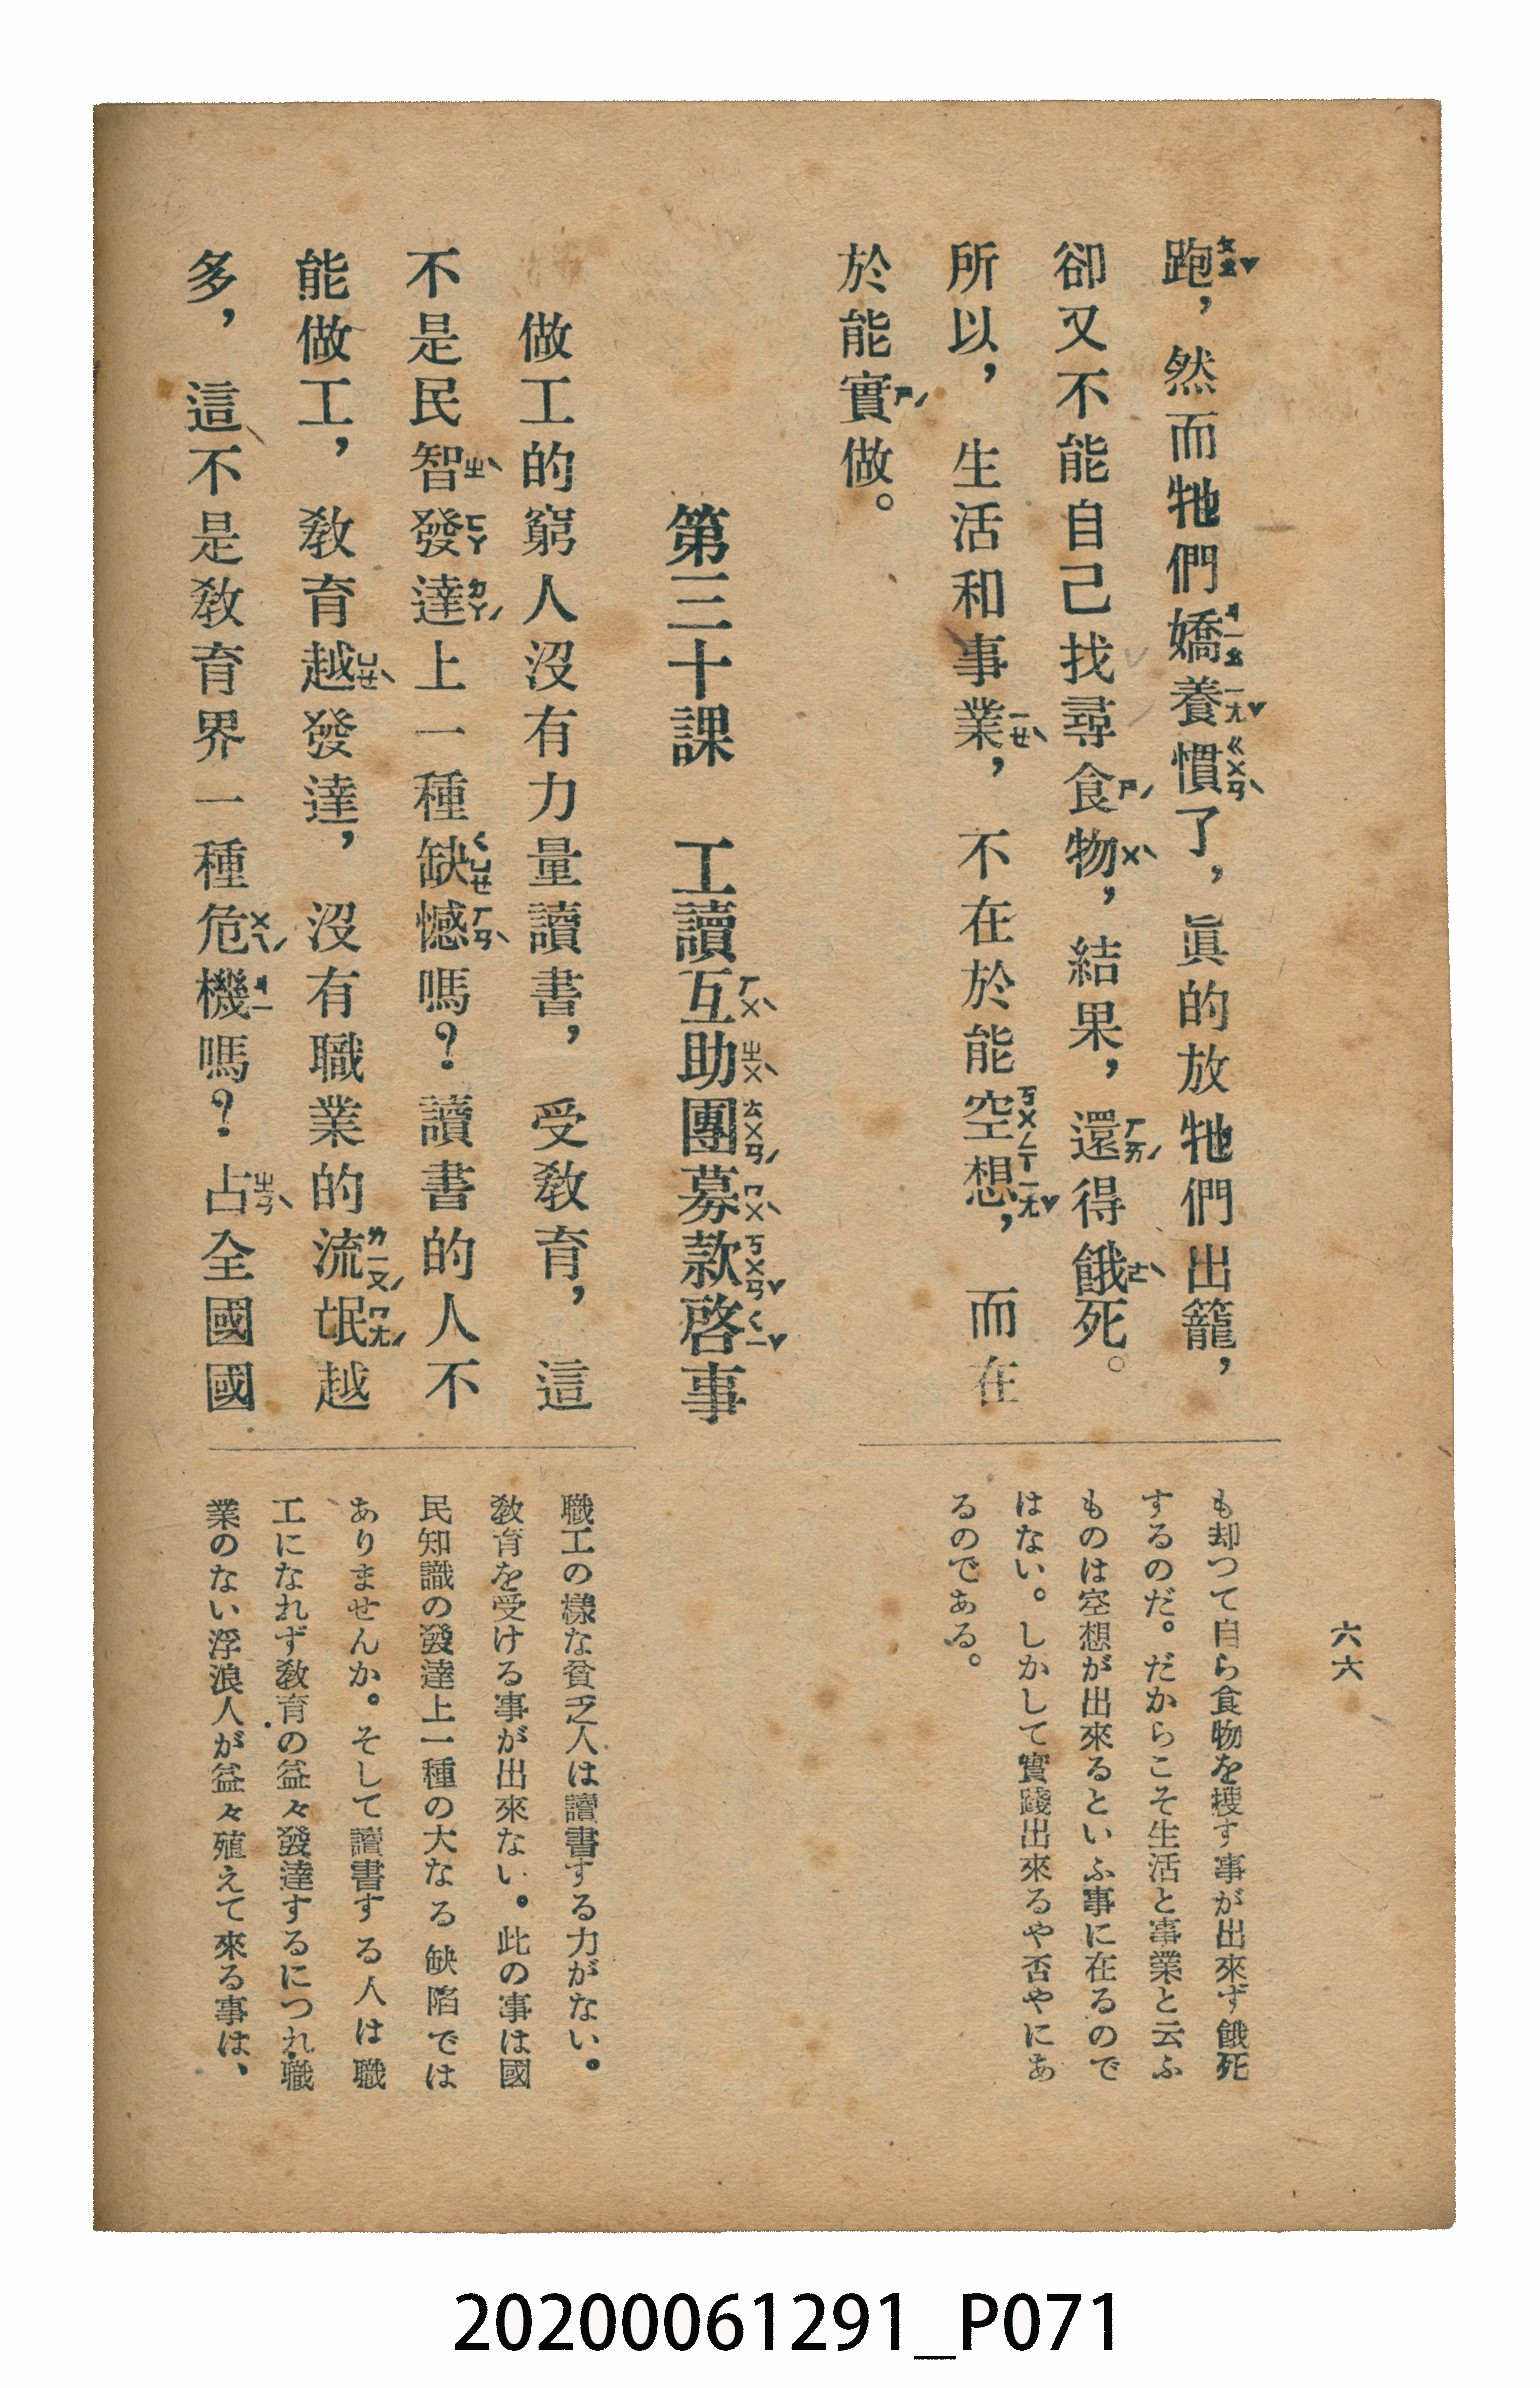 跑，然而牠們嬌養慣了，眞的放牠們出籠，
卻又不能自己找尋食物，結果，還得餓死。
所以，生活和事業，不在於能空想，而在
於能實做。
も却つて自ら食物を搜す事が出來ず餓死
するのだ。だからこそ生活と事業と云ふ
ものは空想が出來るといふ事に在るので
はない。しかして實踐出來るや否やにあ
るのである。
第三十課　工讀互助團募款啓事
做工的窮人沒有力量讀書，受敎育，這
不是民智發達上一種缺憾嗎？讀書的人不
能做工，敎育越發達，沒有職業的流氓越
多，這不是敎育界一種危機嗎？占全國國
職工の樣な貧乏人は讀書する力がない。
敎育を受ける事が出來ない。此の事は國
民知識の發達上一種の大なる缺陷では
ありませんか。そして讀書する人は職
工になれず敎育の益々發達するにつれ職
業のない浮浪人が益々殖えて來る事は、
六六
ㄆㄠˇ
ㄐㄧㄠ
ㄧㄤˇ
ㄍㄨㄢˋ
ㄕˊ
ㄨˋ
ㄏㄞˊ
ㄜˋ
ㄧㄝˋ
ㄎㄨㄥ
ㄒㄧㄤˇ
ㄕˊ
ㄏㄨˋ
ㄓㄨˋ
ㄊㄨㄢˊ
ㄇㄨˋ
ㄎㄨㄢˇ
ㄑㄧˇ
ㄓˋ
ㄈㄚ
ㄉㄚˊ
ㄑㄩㄝ
ㄏㄢˋ
ㄩㄝˋ
ㄌㄧㄡˊ
ㄇㄤˊ
ㄨㄟˊ
ㄐㄧ
ㄓㄢˋ
20200061291_P071